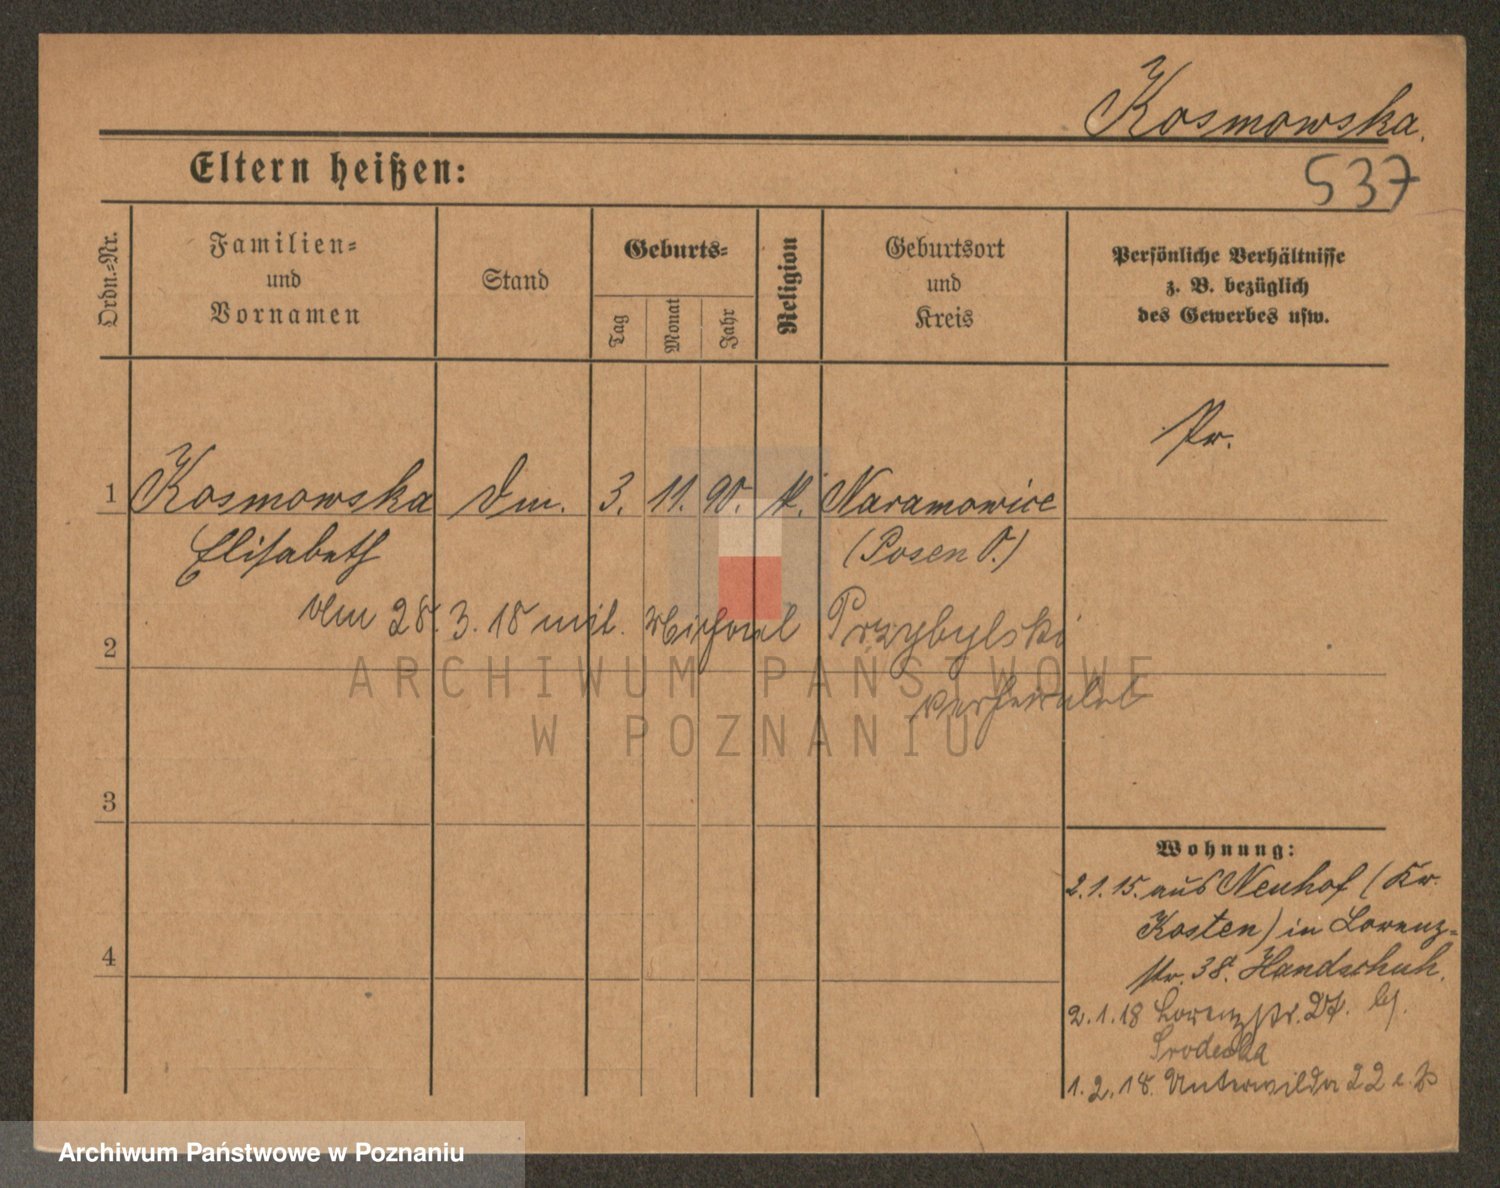 Kosmowska.
Eltern heißen:
537
Ordn.-Nr.
Familien- und Vornamen
Stand
Geburts-
Tag
Monat
Jahr
Religion
Geburtsort und Kreis
Persönliche Verhältnisse z. B. bezüglich des Gewerbes usw.
Pr.
1 Kosmowska 3. 11. 90. K. Naramowice
Elisabeth (Posen O.)
28.3.18 mit Michael Przybylski
2
verheiratet
3
4
Wohnung:
2.1.15. aus Neuhof (Kr.
Kosten) in Lorenz-
str. 38. Handschuh.
2.1.18 Lorenzstr. bei
Srodecka
1.2.18. Unterwilda 22
ARCHIWUM PAŃSTWOWE
W POZNANIU
Archiwum Państwowe w Poznaniu